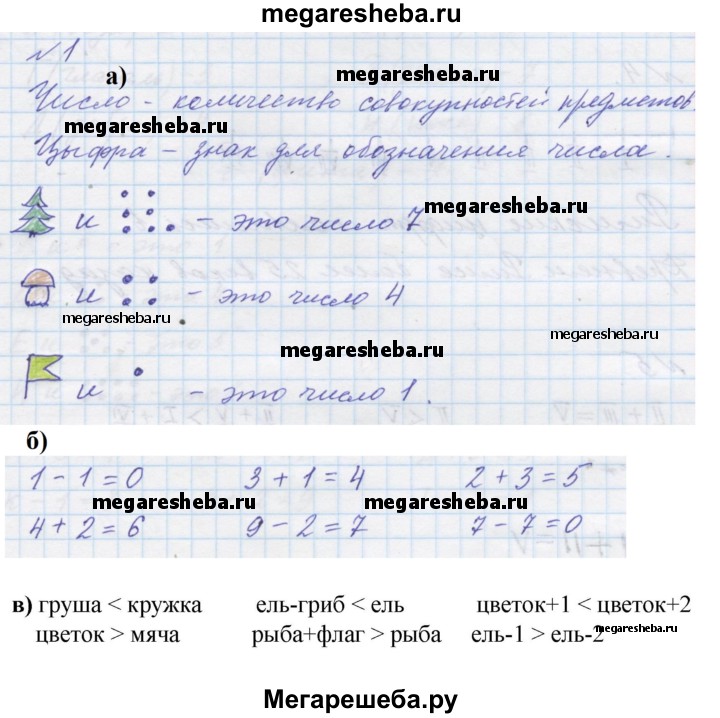 megaresheba.ru
№1
а)
megaresheba.ru
Число - количество совокупностей предметов.
megaresheba.ru
Цыфра - знак для обозначения числа.
и - это число 7
megaresheba.ru
и - это число 4
megaresheba.ru
megaresheba.ru
megaresheba.ru
и - это число 1.
б)
1 - 1 = 0 3 + 1 = 4 2 + 3 = 5
megaresheba.ru megaresheba.ru
4 + 2 = 6 9 - 2 = 7 7 - 7 = 0
в) груша < кружка ель-гриб < ель цветок+1 < цветок+2
цветок > мяча рыба+флаг > рыба ель-1 > ель-2
megaresheba.ru
Мегарешеба.ру